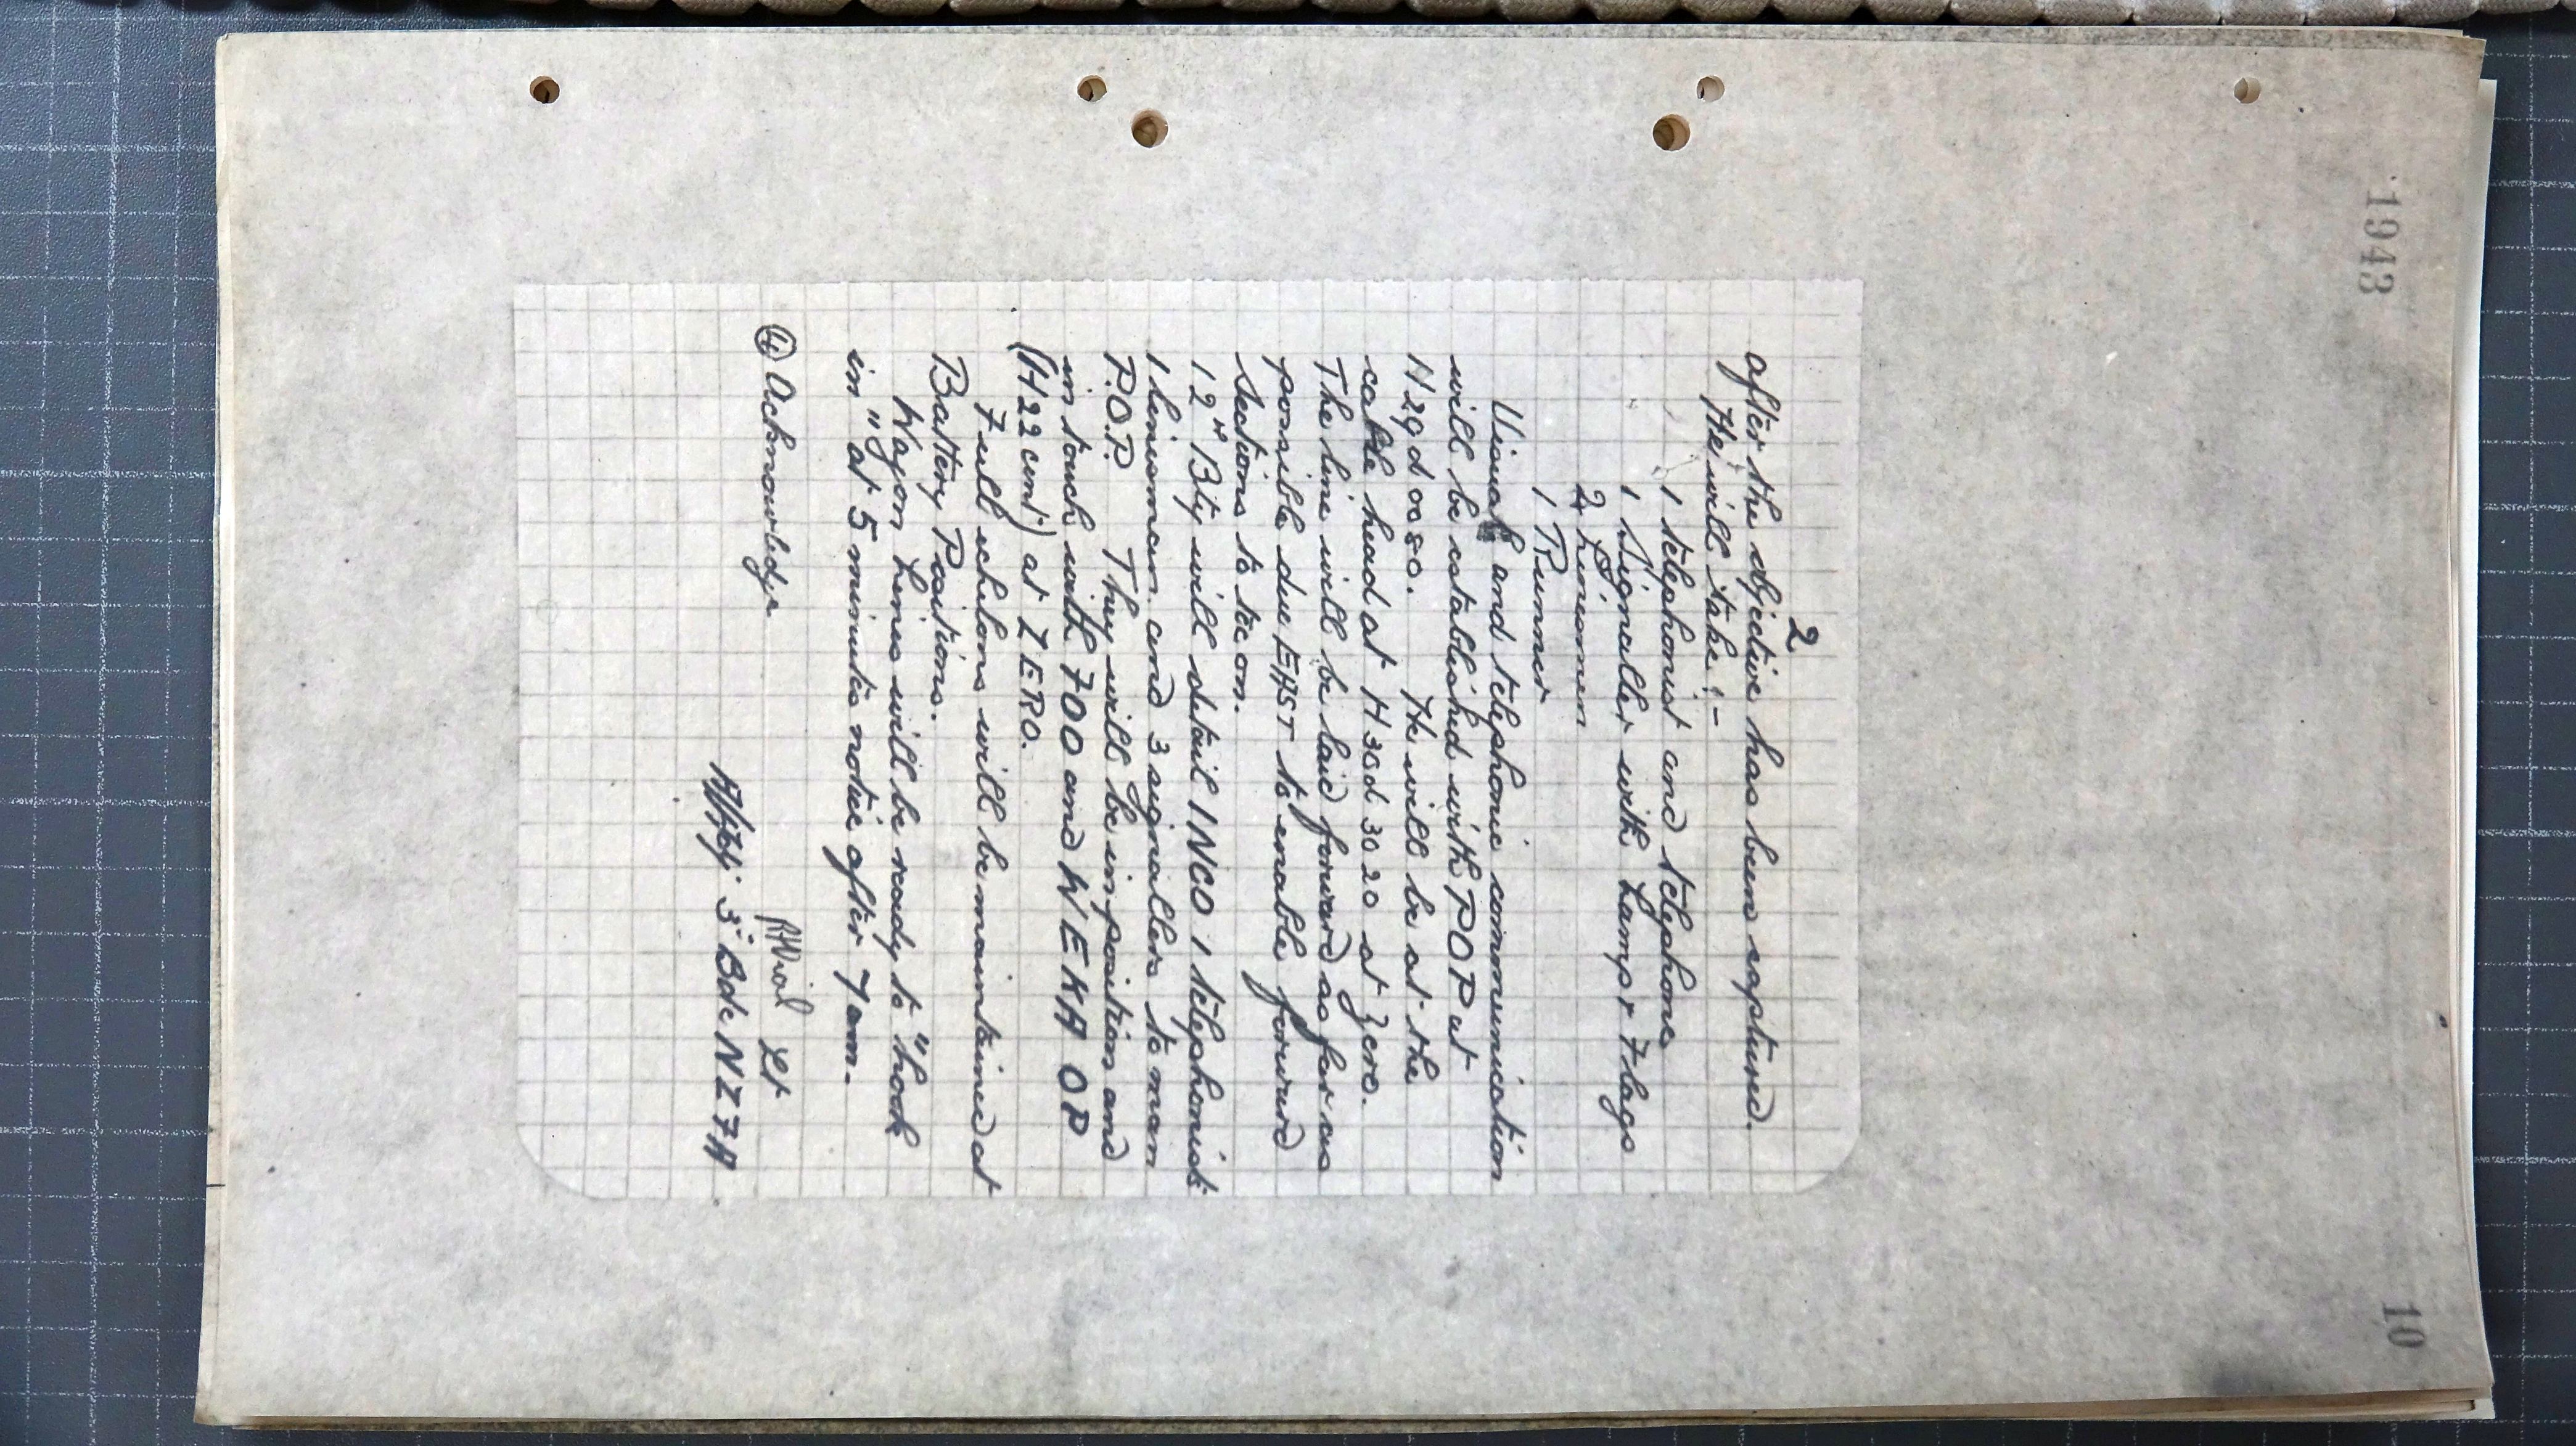 1943
10
2
after the objective has been captured.
He will take :-
1 telephonist and telephone
1 Signaller with Lamp & Flags
2 Linesmen
1 Runner
Visual and telephonic communication
will be established with POP at
H29d 00 80. He will be at the
cable head at H30d 30 20 at Zero.
The line will be laid forward as far as
possible due EAST to enable forward
Sections to tee on.
12th Bty will detail 1 NCO 1 telephonist
1 linesman and 3 signallers to man
P.O.P. They will be in position and
in touch with 700 and WEKA OP
(H22 cent) at ZERO.
Full echelons will be maintained at
Battery Positions.
Wagon Lines will be ready to "hook
in" at 5 minutes notice after 7 am.
④ Acknowledge
Lt
A/Adj. 3rd Bde NZFA